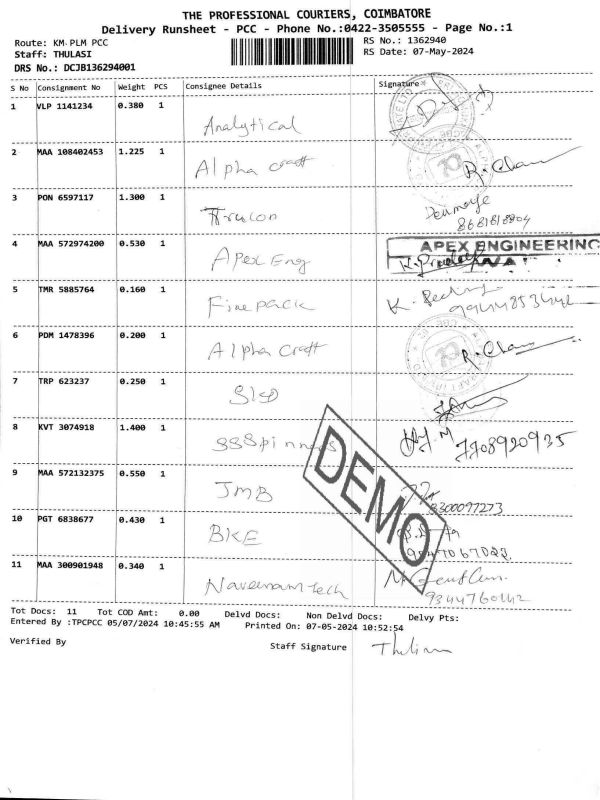 THE PROFESSIONAL COURIERS, COIMBATORE
Delivery Runsheet - PCC - Phone No.:0422-3505555 - Page No.:1
Route: KM-PLM PCC RS No.: 1362940
Staff: THULASI RS Date: 07-May-2024
DRS No.: DCJB136294001
S No Consignment No Weight PCS Consignee Details Signature
1 VLP 1141234 0.380 1 Analytical
2 MAA 108402453 1.225 1 Alpha craft R. Chan
3 PON 6597117 1.300 1
8681818804
4 MAA 572974200 0.530 1 Apex Eng APEX ENGINEERING
5 TMR 5885764 0.160 1 Finepack K.
6 PDM 1478396 0.200 1 Alpha Craft R. Chan
7 TRP 623237 0.250 1
8 KVT 3074918 1.400 1 SSSpinners 7708920935
9 MAA 572132375 0.550 1 JMB
8300097273
10 PGT 6838677 0.430 1 BKE
11 MAA 300901948 0.340 1 Naveenam tech
9344760142
DEMO
Tot Docs: 11 Tot COD Amt: 0.00 Delvd Docs: Non Delvd Docs: Delvy Pts:
Entered By :TPCPCC 05/07/2024 10:45:55 AM Printed On: 07-05-2024 10:52:54
Verified By Staff Signature